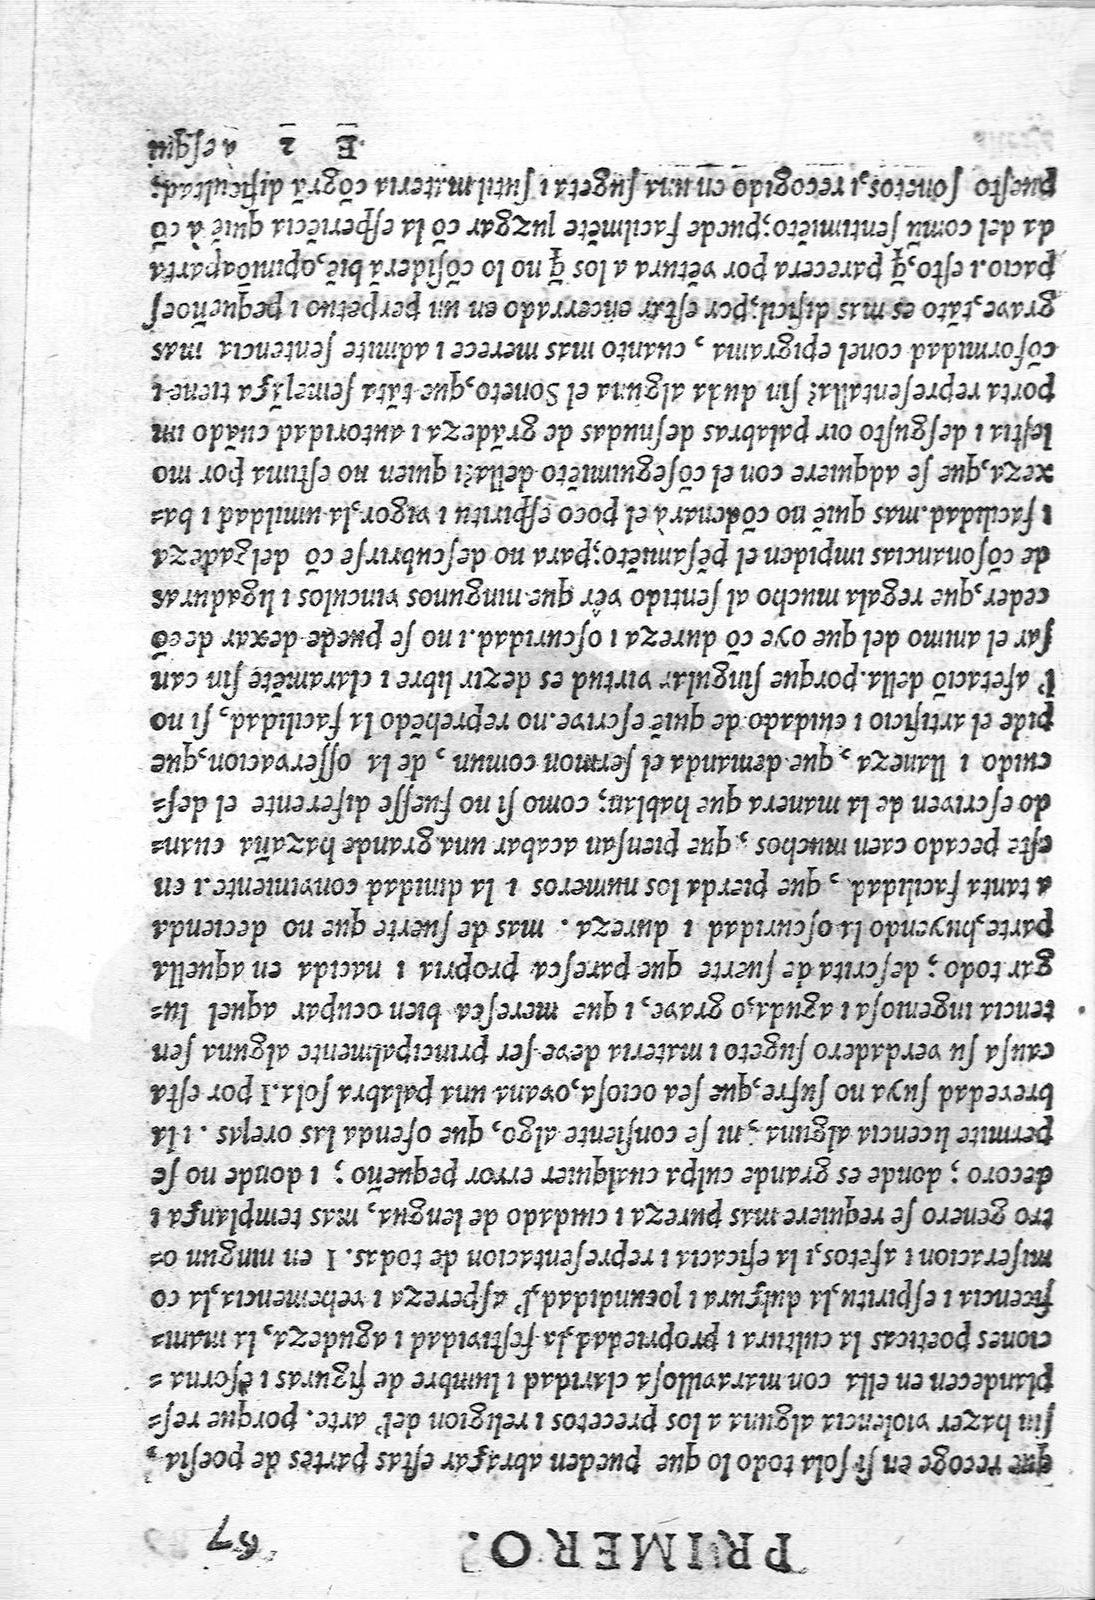 PRIMERO. 67
que recoge en si sola todo lo que pueden abraçar estas de partes de poesia,
sin hazer violencia alguna a los precetos i religion del' arte. porque res-
plandecen en ella con maravillosa claridad i lumbre de figuras i esorna-
ciones poeticas la cultura i propriedad, la festividad i agudeza, la mani-
ficencia i espiritu, la dulçura i jocundidad, l' aspereza i vehemencia, la co
miseracion i afetos, i la eficacia i representacion de todas. I en ningun o-
tro genero se requiere mas pureza i cuidado de lengua, mas templança i
decoro; donde es grande culpa cualquier error pequeño; i donde no se
permite licencia alguna, ni se consiente algo, que ofenda las orejas. i la
brevedad suya no sufre, que sea ociosa, o vana una palabra sola. I por esta
causa su verdadero sugeto i materia deve ser principalmente alguna sen
tencia ingeniosa i aguda, o grave, i que meresca bien ocupar aquel lu-
gar todo; descrita de suerte que paresca propria i nacida en aquella
parte, huyendo la oscuridad i dureza. mas de suerte que no decienda
a tanta facilidad, que pierda los numeros i la dinidad conviniente. i en
este pecado caen muchos, que piensan acabar una grande hazaña cuan-
do escriven de la manera que hablan; como si no fuesse diferente el des-
cuido i llaneza, que demanda el sermon comun, de la osservacion, que
pide el artificio i cuidado de quiẽ escrive. no reprehẽdo la facilidad, si no
l' afetaciõ della. porque singular virtud es dezir libre i claramẽte sin can
sar el animo del que oye cõ dureza i oscuridad. i no se puede dexar de cõ
ceder, que regala mucho al sentido vèr que ningunos vinculos i ligaduras
de cõsonancias impiden el pẽsamiẽto; para no descubrirse cõ delgadeza
i facilidad. mas quiẽ no cõdenarà el poco espiritu i vigor, la umildad i ba-
xeza, que se adquiere con el cõseguimiẽto della? i quien no estima por mo
lestia i desgusto oir palabras desnudas de grãdeza i autoridad cuãdo im
porta representalla? sin duda alguna el Soneto, que tãta semejãça tiene i
cõformidad con el epigrama, cuanto mas merece i admite sentencia mas
grave, tãto es mas dificil; por estar encerrado en un perpetuo i pequeño es
pacio. i esto, q̃ parecera por vẽtura a los q̃ no lo cõsiderã biẽ, opiniõ aparta
da del comũ sentimiẽto; puede facilmẽte juzgar cõ la esperiẽcia quiẽ à cõ
puesto sonetos, i recogido en una sugeta i sutil materia cõ grã dificultad.
E 2 a esqui